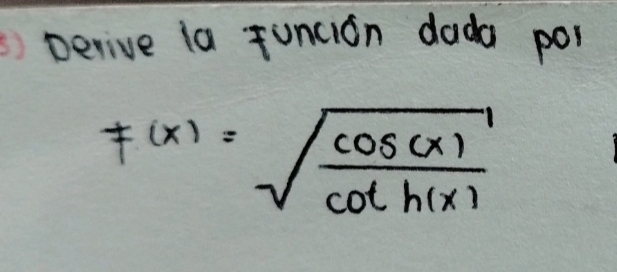 3) Derive la función dada por
f(x) = √(cos(x) / cot h(x))